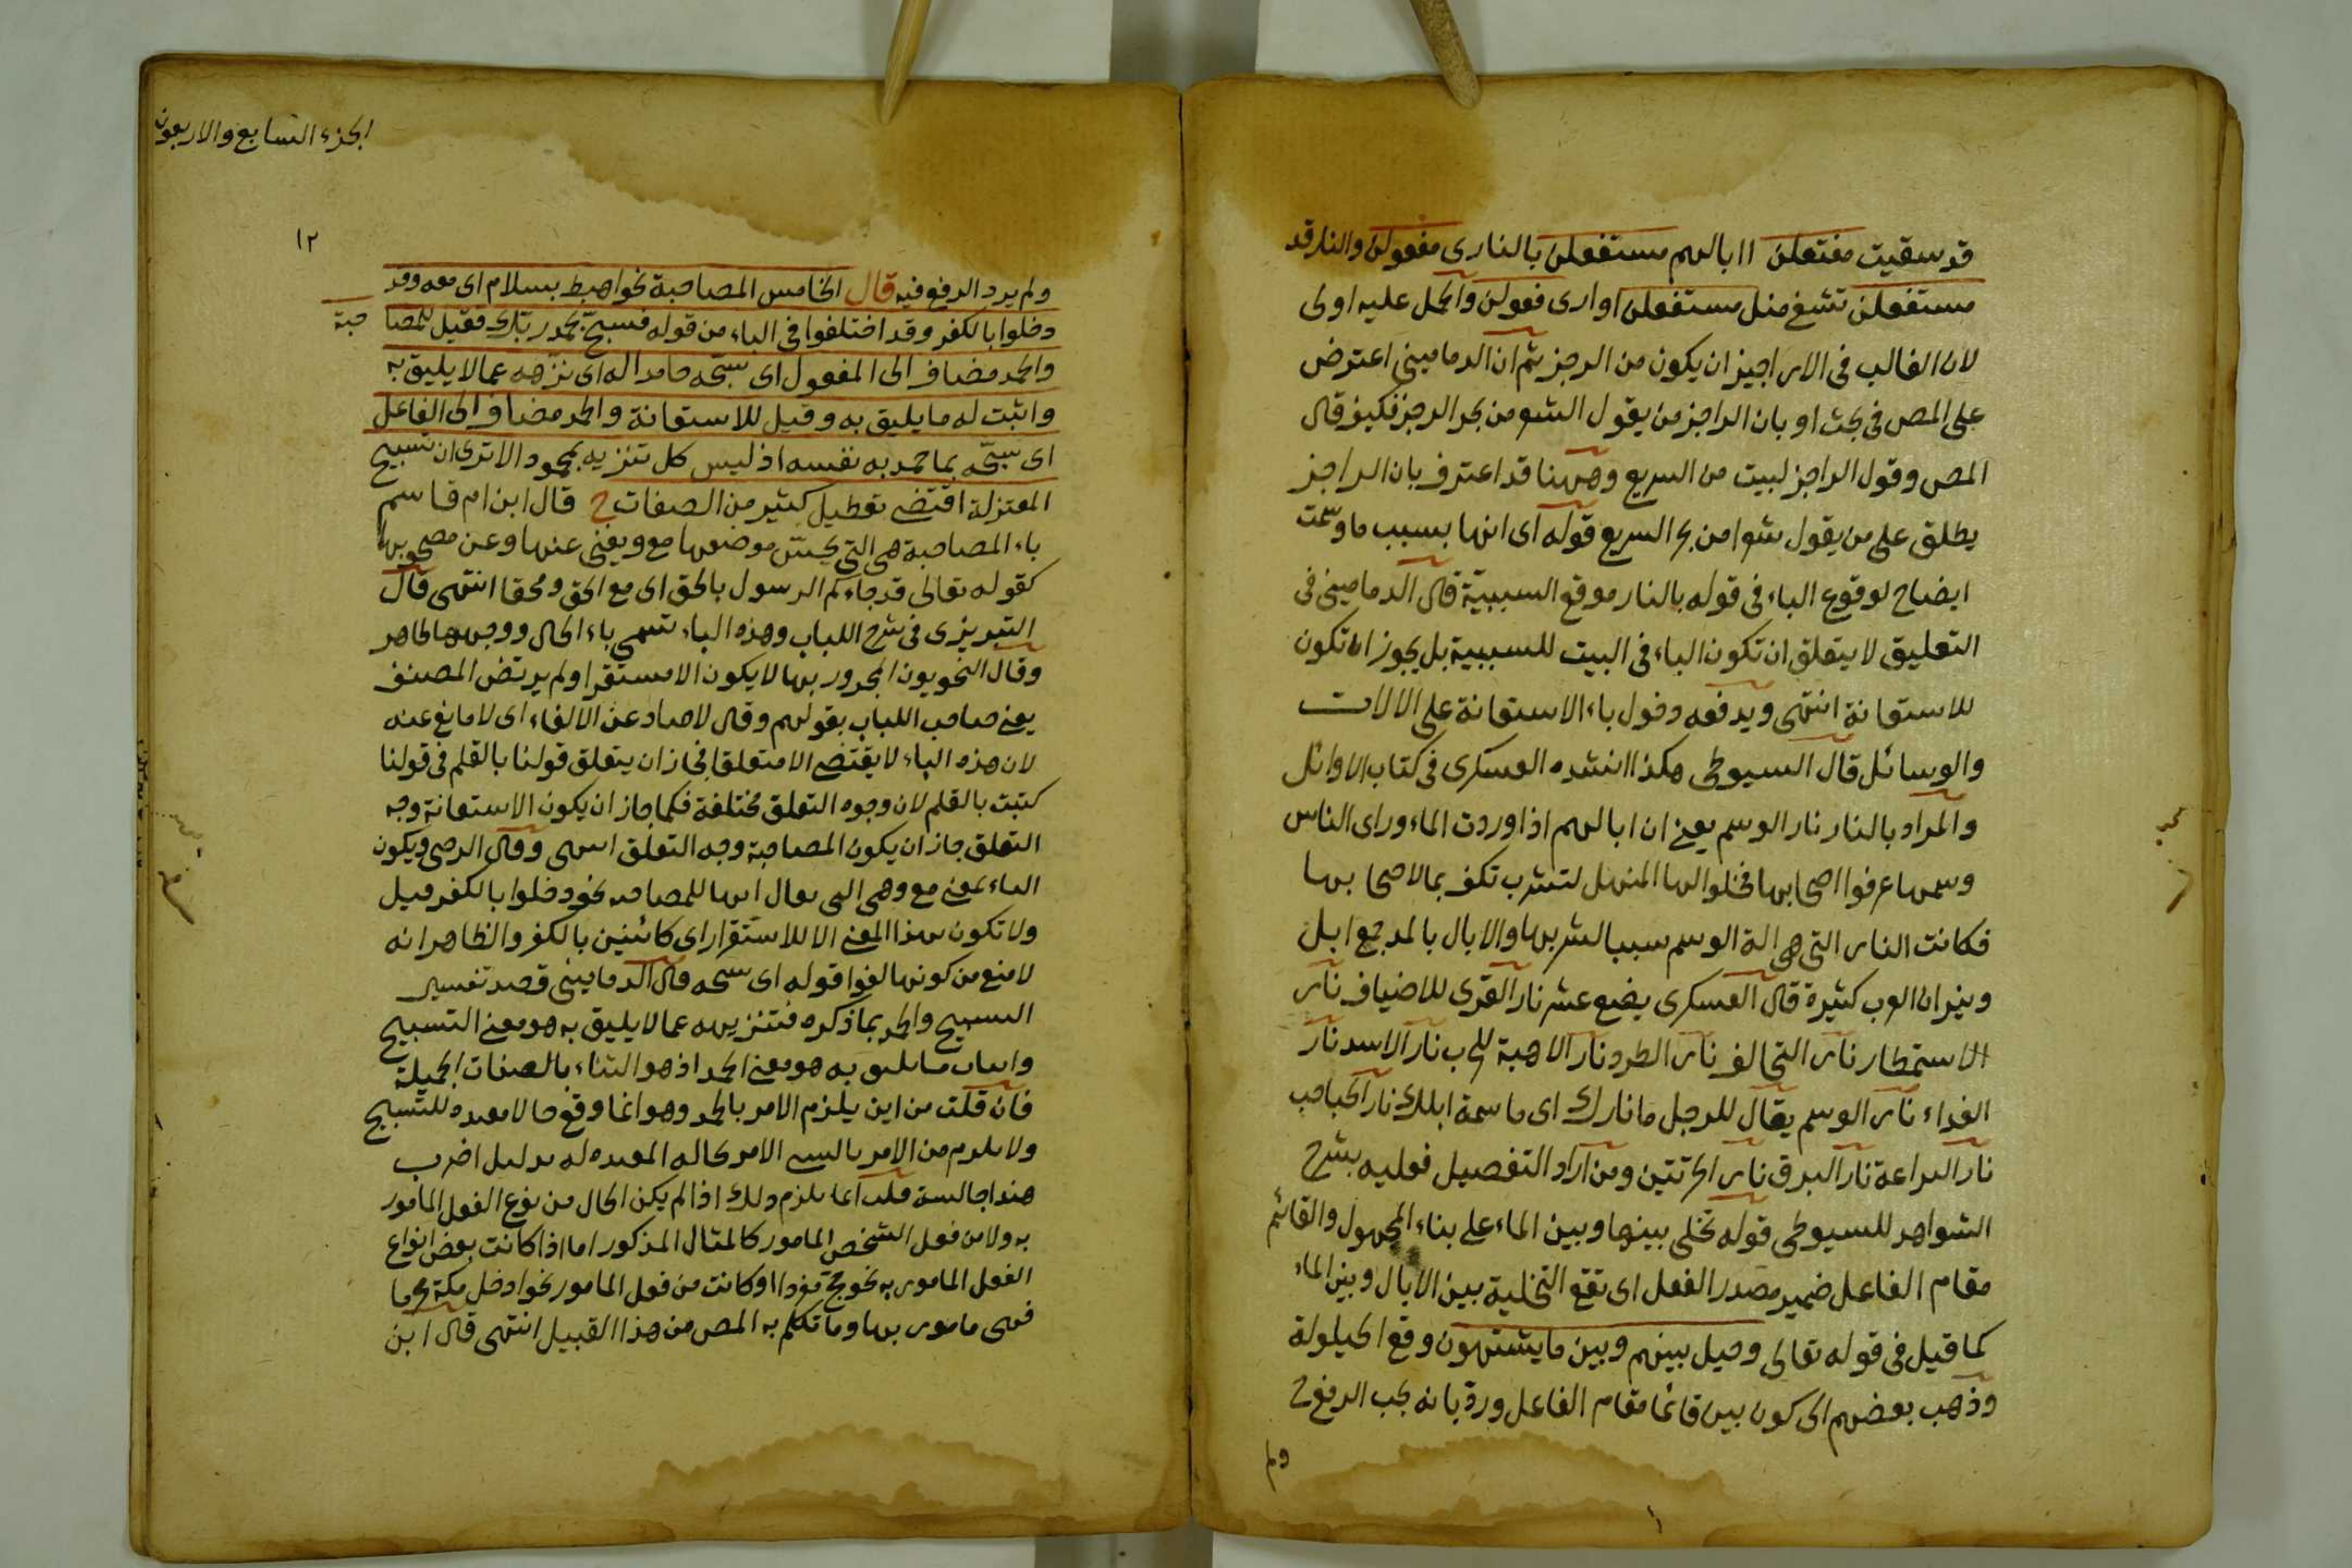 قد سقيت مفتعلن اابالهم مستفعلن بالنارى مفعولن والنار قد
مستفعلن تشفى مثل مستفعلن اوارى فعولن والحمل عليه اولى
لان الغالب فى الاراجيز ان يكون من الرجز ثم ان الدمامينى اعترض
على المص فى بحث او بان الراجز من يقول الشعر من بحر الرجز فكيف قال
المص وقول الراجز لبيت من السريع وههنا قد اعترف بان الراجز
يطلق على من يقول شعرا من بحر السريع قوله اى انها بسبب ما وسمت
ايضاح لوقوع الباء فى قوله بالنار موقع السببية قال الدمامينى فى
التعليق لا يتعلق ان تكون الباء فى البيت للسببية بل يجوز ان تكون
للاستعانة انتهى ويدفعه دخول باء الاستعانة على الالات
والوسائل قال السيوطى هكذا انشده العسكرى فى كتاب الاوائل
والمراد بالنار نار الوسم يعنى ان ابالهم اذا وردت الماء وراى الناس
وسمها عرفوا اصحابها فخلوا لها المنهل لتشرب تكف بمالاصحابها
فكانت النار التى هى الة الوسم سببا لشربها والابال بالمد جمع ابل
ونيران العرب كثيرة قال العسكرى بضع عشر نار القرى للاضياف نار
الاستمطار نار التحالف نار الطرد نار الاهبة للحرب نار الاسد نار
الفداء نار الوسم يقال للرجل ما نارك اى ما سمة ابلك نار الحباحب
نار اليراعة نار البرق نار الحرتين ومن اراد التفصيل فعليه بشرح
الشواهد للسيوطى قوله تخلى بينها وبين الماء على بناء المجهول والقائم
مقام الفاعل ضمير مصدر الفعل اى تقع التخلية بين الابال وبين الماء
كما قيل فى قوله تعالى وحيل بينهم وبين ما يشتهون وقع الحيلولة
وذهب بعضهم الى كون بين قائما مقام الفاعل ورد بانه يجب الرفع ح
ولم
الجزء السابع والاربعون
١٢
ولم يرد الرفع فيه قال الخامس المصاحبة نحو اهبط بسلام اى معه وقد
دخلوا بالكفر وقد اختلفوا فى الباء من قوله فسبح بحمد ربك فقيل للمصا حبة
والحمد مضاف الى المفعول اى سبحه حامدا له اى نزهه عما لا يليق به
واثبت له ما يليق به وقيل للاستعانة والحمد مضاف الى الفاعل
اى سبحه بما حمد به نفسه اذ ليس كل تنزيه بمحمود الا ترى ان تسبيح
المعتزلة اقتضى تعطيل كثير من الصفات ح قال ابن ام قاسم
باء المصاحبة هى التى يحسن موضعها مع ويغنى عنها وعن مصحوبها
كقوله تعالى قد جاءكم الرسول بالحق اى مع الحق ومحقا انتهى قال
التبريزى فى شرح اللباب وهذه الباء تسمى باء الحال ووجهها ظاهر
وقال النحويون المجرور بها لا يكون الا مستقرا ولم يرتض المصنف
يعنى صاحب اللباب بقولهم وقال لاصاد عن الالغاء اى لا مانع عنه
لان هذه الباء لا يقتضى الا متعلقا فجاز ان يتعلق قولنا بالقلم فى قولنا
كتبت بالقلم لان وجوه التعلق مختلفة فكما جاز ان يكون الاستعانة وجه
التعلق جاز ان يكون المصاحبة وجه التعلق انتهى وقال الرضى ويكون
الباء بمعنى مع وهى التى يقال انها للمصاحبة نحو دخلوا بالكفر قيل
ولا تكون بهذا المعنى الا للاستقرار اى كائنين بالكفر والظاهر انه
لا منع من كونها لغوا قوله اى سبحه قال الدمامينى قصد تفسير
التسبيح والحمد بما ذكره فتنزيهه عما لا يليق به هو معنى التسبيح
واثبات ما يليق به هو معنى الحمد اذ هو الثناء بالصفات الجميلة
فان قلت من اين يلزم الامر بالحمد وهو انما وقع حالا مقيده للتسبيح
ولا يلزم من الامر بالشىء الامر بحاله المقيده له بدليل اضرب
هندا جالسة قلت انما يلزم ذلك اذا لم يكن الحال من نوع الفعل المامور
به ولا من فعل الشخص المامور كالمثال المذكور اما اذا كانت بعض انواع
الفعل المامور به نحو حج مفردا او كانت من فعل المامور نحو ادخل مكة محرما
فهى مامور بها وما تكلم به المص من هذا القبيل انتهى قال ابن